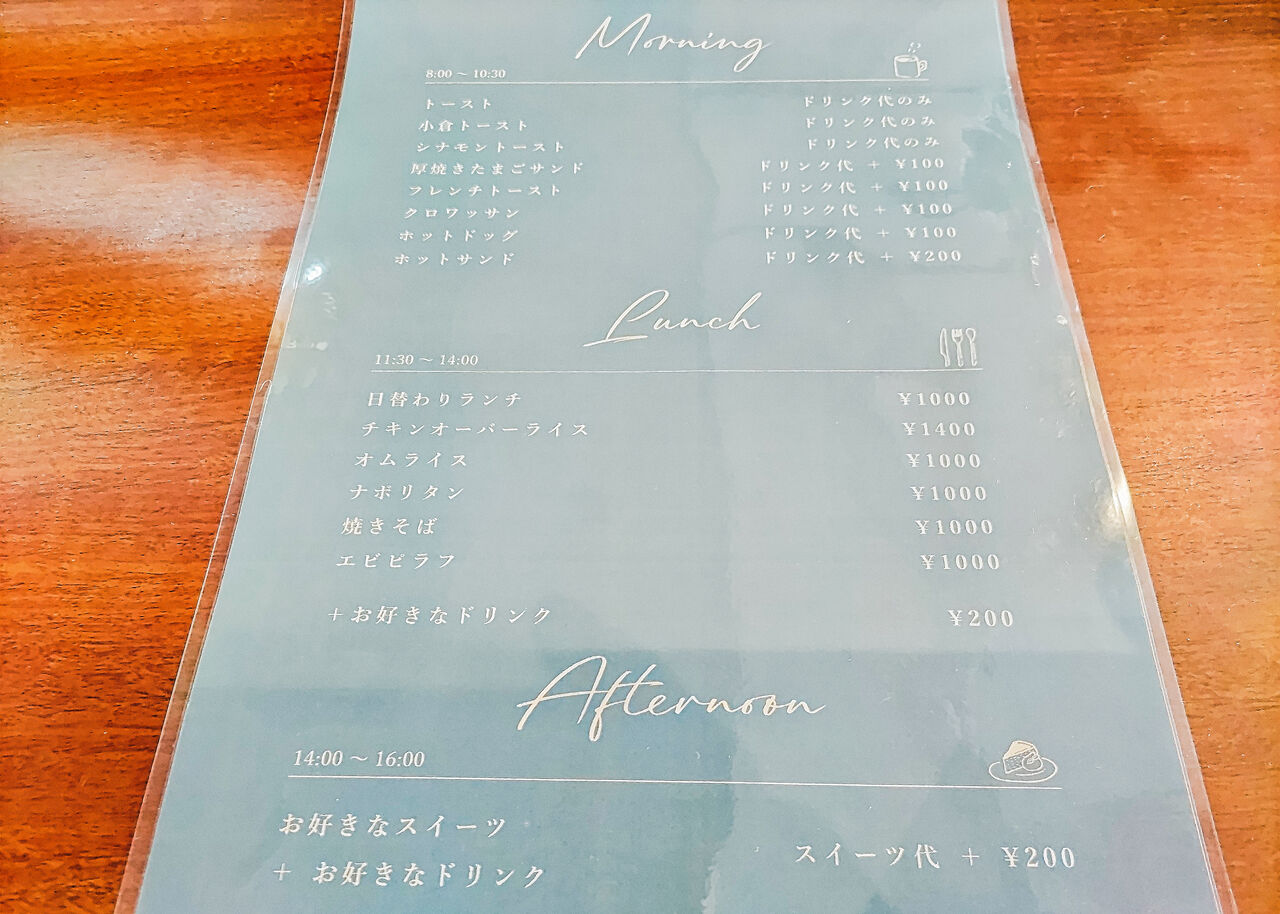 Morning
8:00 ～ 10:30
トースト ドリンク代のみ
小倉トースト ドリンク代のみ
シナモントースト ドリンク代のみ
厚焼きたまごサンド ドリンク代 + ¥100
フレンチトースト ドリンク代 + ¥100
クロワッサン ドリンク代 + ¥100
ホットドッグ ドリンク代 + ¥100
ホットサンド ドリンク代 + ¥200
Lunch
11:30 ～ 14:00
日替わりランチ ¥1000
チキンオーバーライス ¥1400
オムライス ¥1000
ナポリタン ¥1000
焼きそば ¥1000
エビピラフ ¥1000
+お好きなドリンク ¥200
Afternoon
14:00 ～ 16:00
お好きなスイーツ
+ お好きなドリンク
スイーツ代 + ¥200